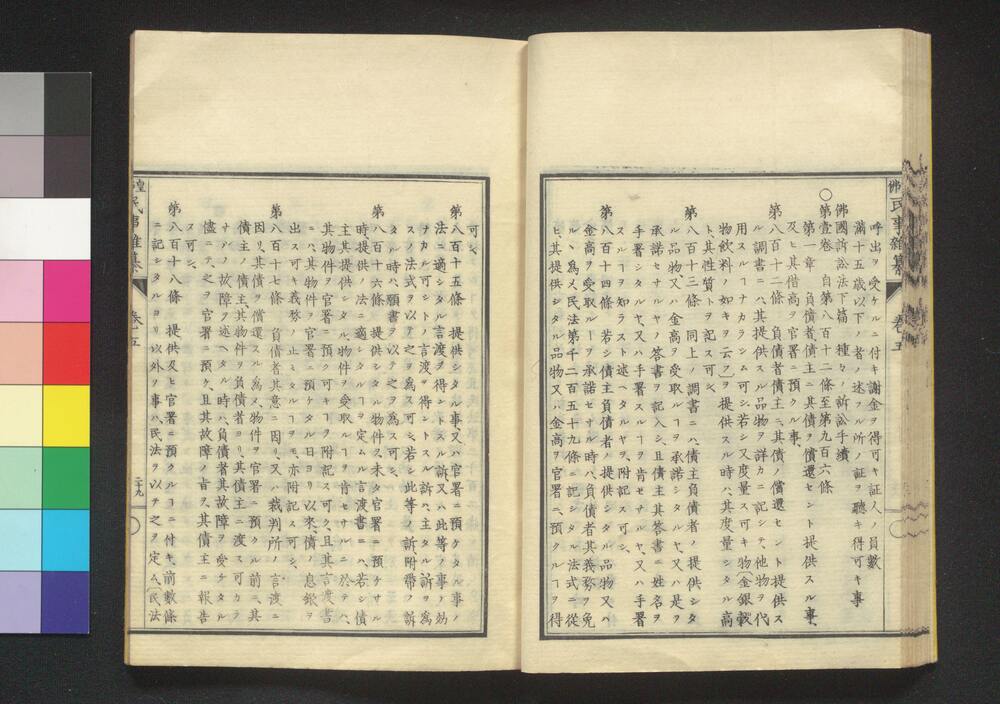 呼出ヲ受ケルニ付キ謝金ヲ得可キ証人ノ員數
滿十五歳以下ノ者ノ述フル所ノ証ヲ聽キ得可キ事
佛國訴訟法下篇 種々ノ訴訟手續
○第壹卷 自第八百十二條至第九百六條
第一章 負債者債主ニ其債ヲ償還セント提供スル事、
及ヒ其償高ヲ官署ニ預クル事、
第八百十二條 負債者債主ニ其債ノ償還セント提供ス
ル調書ニハ其提供スル品物ヲ詳カニ記シテ、他物ヲ代
用スルヿナカラシム可シ若シ又度量ス可キ物(金銀穀
物飲料ノ如キヲ云フ)ヲ提供スル時ハ其度量シタル高
ト、其性質トヲ記ス可シ、
第八百十三條 同上ノ調書ニハ、債主負債者ノ提供シタ
ル品物又ハ金高ヲ受取ルヿヲ承諾シタルヤ、又ハ是ヲ
承諾セサルヤノ答書ヲ記入シ、且債主其答書ニ姓名ヲ
手署シタルヤ、又ハ手署スルヿヲ肯セサルヤ、又ハ手署
スルヿヲ知ラスト述ヘタルヤヲ附記ス可シ、
第八百十四條 若シ債主負債者ノ提供シタル品物又ハ
金高ヲ受取ルヿヲ承諾セサル時ハ、負債者其義務ヲ免
ルヽ爲メ民法第千二百五十九條ニ記シタル法式ニ從
ヒ其提供シタル品物又ハ金高ヲ官署ニ預クルヿヲ得
可シ、
第八百十五條 提供シタル事、又ハ官署ニ預ケタル事ノ
法ニ適シタル言渡ヲ得ントスル訴又ハ此等ノ事ノ効
ナカル可シトノ言渡ヲ得ントスル訴ハ、主タル訴ヲ爲
スノ法式ヲ以テ之ヲ爲ス可シ、若シ此等ノ訴、附帶ノ訴
タル時ハ、願書ヲ以テ之ヲ爲ス可シ、
第八百十六條 提供シタル物件ノ未タ官署ニ預ケサル
時、提供ノ法ニ適シタルヿヲ定ムル言渡書ニハ、若シ債
主其提供シタル物件ヲ受取ルヿヲ肯セサルニ於テハ、
其物件ヲ官署ニ預ク可キヿヲ附記ス可ク、且其言渡書
ニハ、其物件ヲ官署ニ預ケタル日ヨリ以來、債ノ息銀ヲ
出ス可キ義務ノ止ミタルヿヲモ亦附記ス可シ、
第八百十七條 負債者其意ニ因リ、又ハ裁判所ノ言渡ニ
因リ、其債ヲ償還スル爲メ物件ヲ官署ニ預クル前ニ、其
債主ノ債主、其物件ヲ負債者ヨリ、其債主ニ渡ス可カラ
サルノ故障ヲ述ヘタル時ハ、負債者其故障ヲ受ケタル
儘ニテ、之ヲ官署ニ預ケ、且其故障ノ旨ヲ其債主ニ報告
ス可シ、
第八百十八條 提供及ヒ官署ニ預クルヿニ付キ、前數條
ニ記シタルヨリ以外ノ事ハ、民法ヲ以テ之ヲ定ム、民法
民事雜纂
卷五
二十九